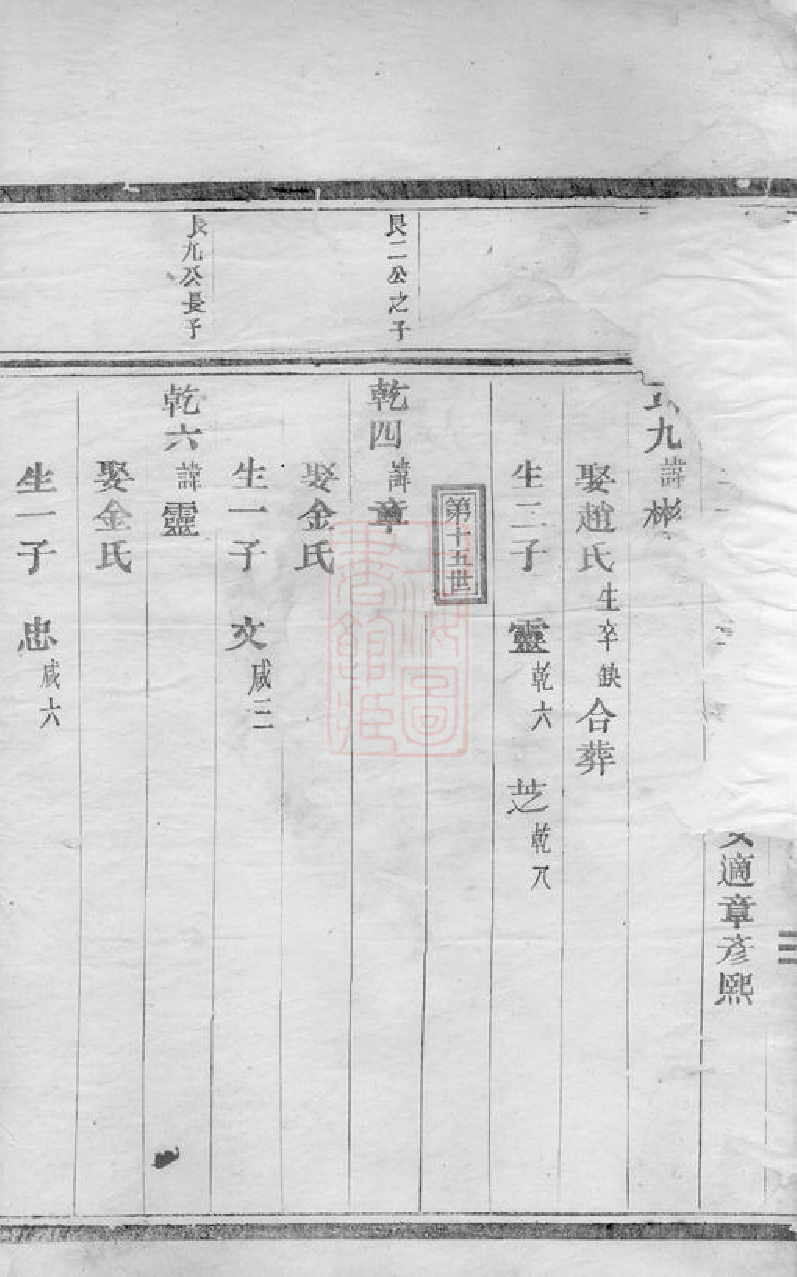 女適章彦熙
九諱彬
娶趙氏生卒缺合葬
生二子 靈乾六 芝乾八
第十五世
艮二公之子
乾四諱章
娶金氏
生一子 文咸三
艮九公長子
乾六諱靈
娶金氏
生一子 忠咸六
上海圖書館藏